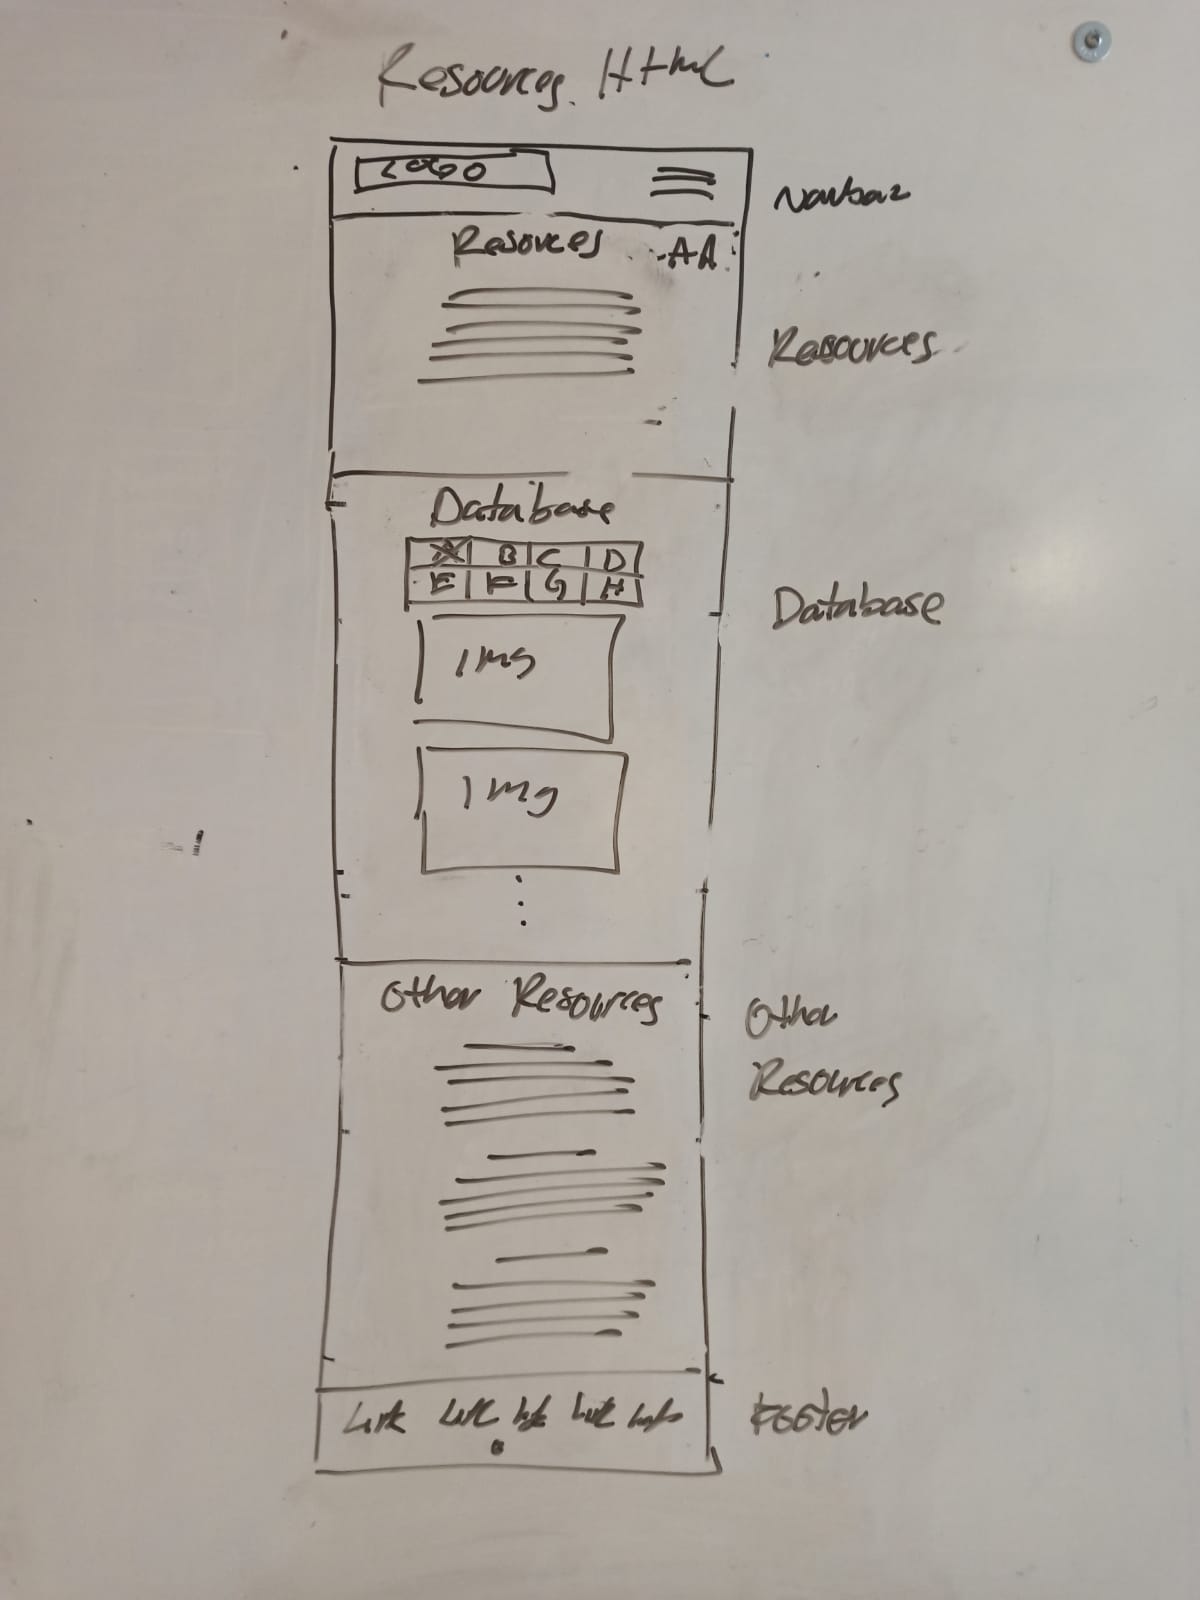 Resources. Html
LOGO
Navbar
Resources AA
Resources
Database
A B C D
E F G H
Img
Database
Img
Other Resources
Other
Resources
Link Link Link Link
Footer